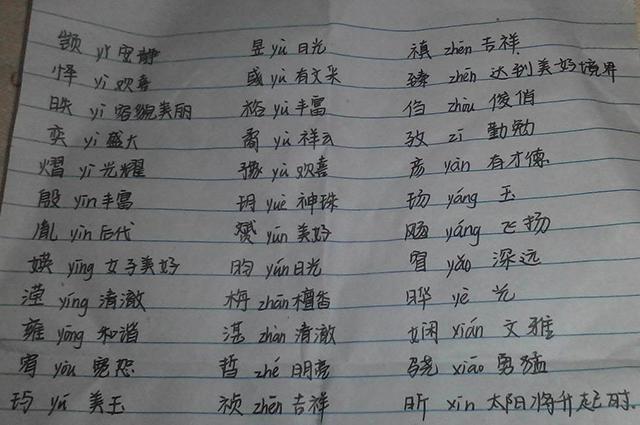 颚 yǐ 安静 昱 yù 日光 禛 zhēn 吉祥
怿 yì 欢喜 彧 yù 有文采 臻 zhēn 达到美好境界
昳 yì 容貌美丽 裕 yù 丰富 㑇 zhòu 俊俏
奕 yì 盛大 矞 yù 祥云 孜 zī 勤勉
熠 yì 光耀 豫 yù 欢喜 彦 yàn 有才德
殷 yīn 丰富 玥 yuè 神珠 玚 yáng 玉
胤 yìn 后代 赟 yūn 美好 飏 yáng 飞扬
媖 yīng 女子美好 昀 yún 日光 窅 yǎo 深远
滢 yíng 清澈 栴 zhān 檀香 晔 yè 光
雍 yōng 和谐 湛 zhàn 清澈 娴 xián 文雅
宥 yòu 宽恕 哲 zhé 明亮 骁 xiāo 勇猛
玙 yú 美玉 祯 zhēn 吉祥 昕 xīn 太阳将升起时.